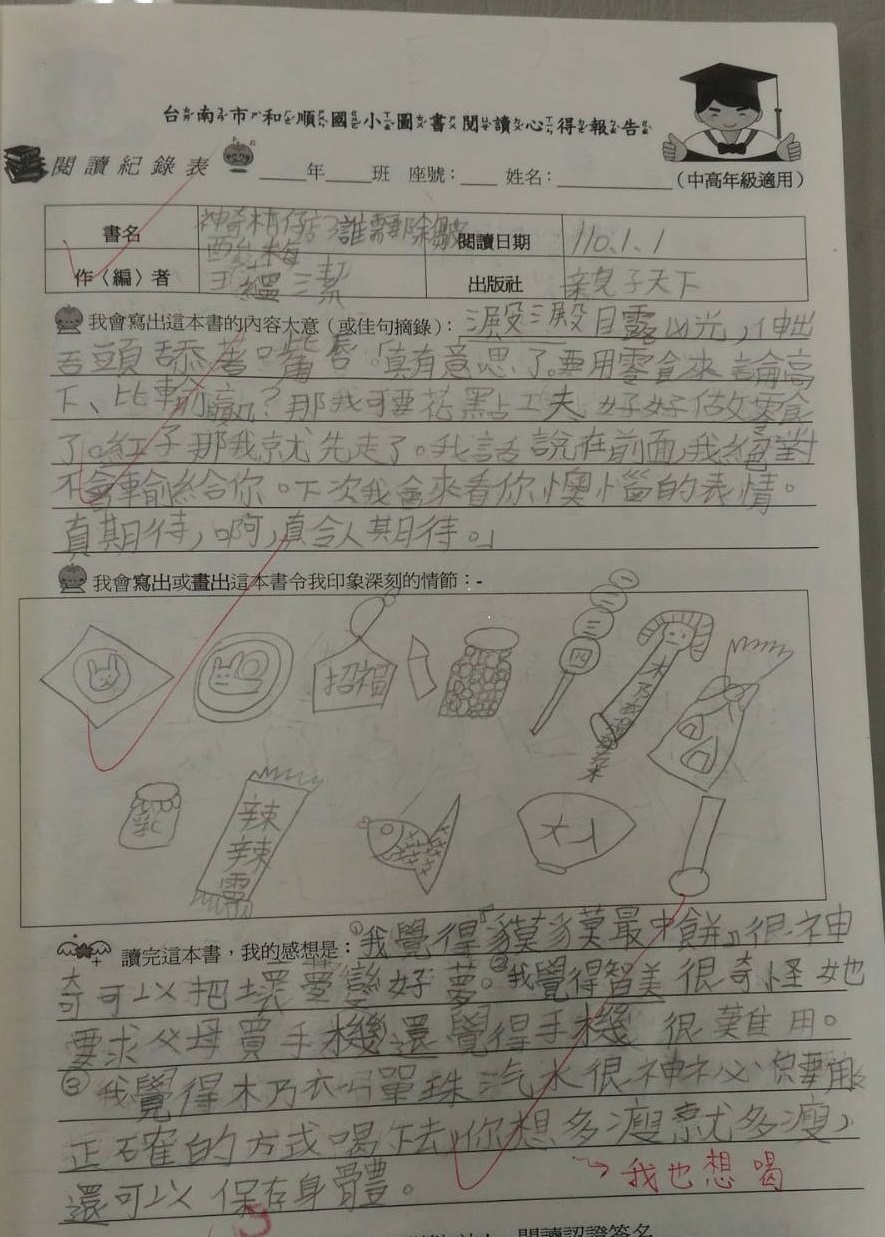 台南市和順國小圖書閱讀心得報告
閱讀紀錄表 ____年____班 座號：____ 姓名：__________（中高年級適用）
書名 神奇柑仔店3誰需要除皺 閱讀日期 110.1.1
酸梅
作〈編〉者 王蘊潔 出版社 親子天下
我會寫出這本書的內容大意（或佳句摘錄）：澱澱目露凶光，伸出
舌頭舔著嘴唇「真有意思了。要用零食來論高
下、比輸贏？那我可要花點工夫好好做零食
了。紅子那我就先走了。我話說在前面，我絕對
不會輸給你。下次我會來看你懊惱的表情。
真期待，啊，真令人期待。」
我會寫出或畫出這本書令我印象深刻的情節：-
一
二
三
四
招福
木乃
乳
辣
辣
雷
大丁
讀完這本書，我的感想是：①我覺得『貘貘最中餅』很神
奇可以把壞夢變好夢。②我覺得智美很奇怪她
要求父母買手機還覺得手機很難用。
③我覺得木乃衣單珠汽水很神祕只要用
正確的方式喝下去你想多瘦就多瘦，
還可以保存身體。
我也想喝
閱讀認證簽名